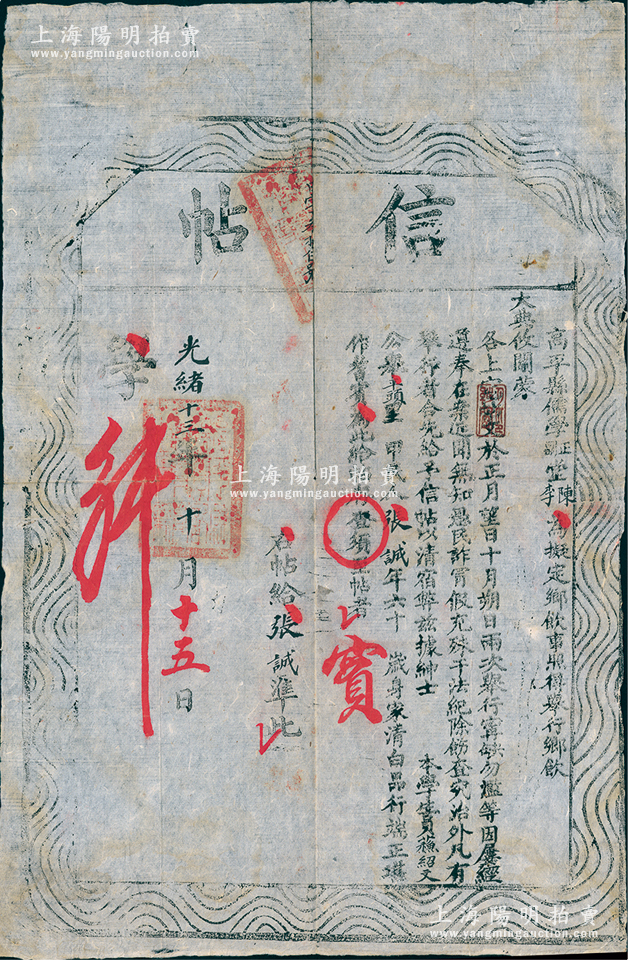 上海陽明拍賣
www.yangmingauction.com
信帖
高平縣儒學正堂陳李為擬定鄉飲事照得舉行鄉飲
大典攸關蒙
各上於正月望日十月朔日兩次舉行寧缺勿濫等因屢經
遵奉在案近聞無知愚民詐冒假充殊干法紀除飭查究治外凡有
舉報者合先給予信帖以清宿弊茲據紳士
本學生員蘇紹文
公舉頭里甲民張誠年六十歲身家清白品行端正堪
作耆賓為此給查須至帖者
賓
右帖給張誠準此
光緒十三年十月十五日
學
上海陽明拍賣
www.yangmingauction.com
上海陽明拍賣
www.yangmingauction.com